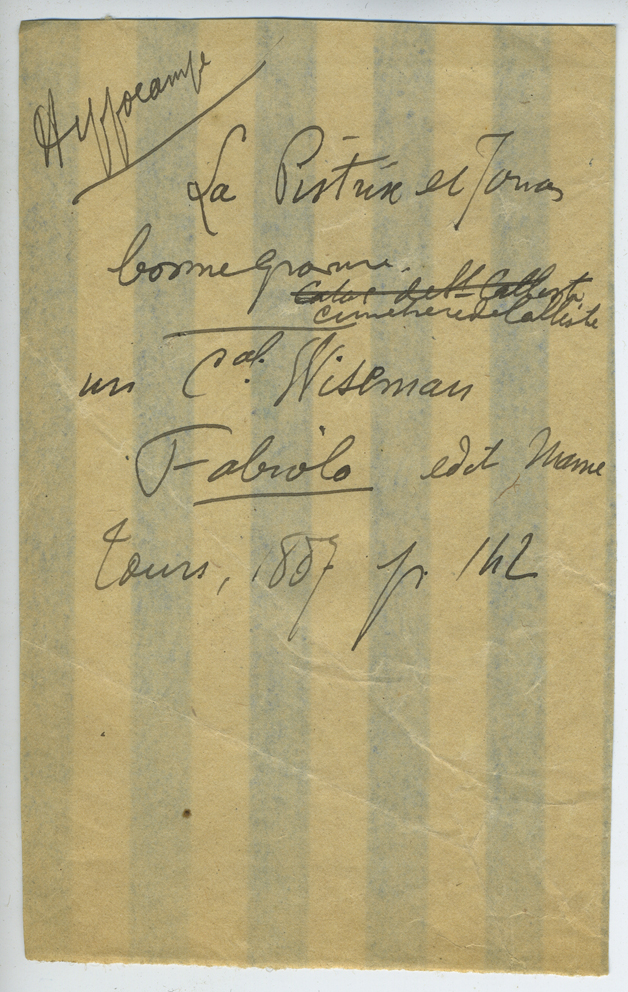 Hyppocampe
La Pistrix et Jonas
bonne gravure.
Catac de St Calliste
cimetière de Calliste
in Cal. Wiseman
Fabiola edit Mame
tours, 1857 p. 142